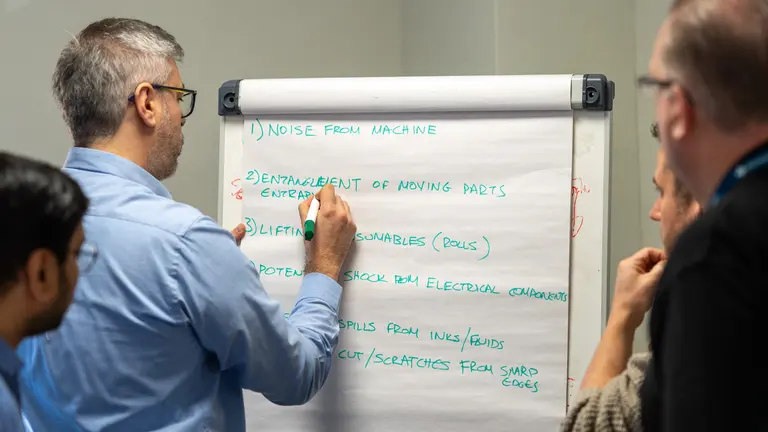 1) NOISE FROM MACHINE
2) ENTANGLEMENT OF MOVING PARTS
3) LIFTIN SUMABLES (ROLLS)
) POTEN SHOCK ROM ELECTRICAL COMPONENTS
SPILLS FROM INKS/FLUIDS
CUT/SCRATCHES FROM SHARP
EDGES